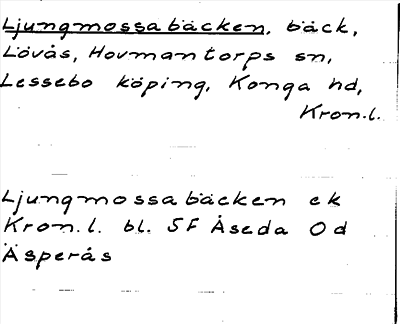 Ljungmossabäcken, bäck,
Lövås, Hovmantorps sn,
Lessebo köping, Konga hd,
Kron.l.
Ljungmossabäcken ek
Kron.l. bl. 5F Åseda Od
Äsperås